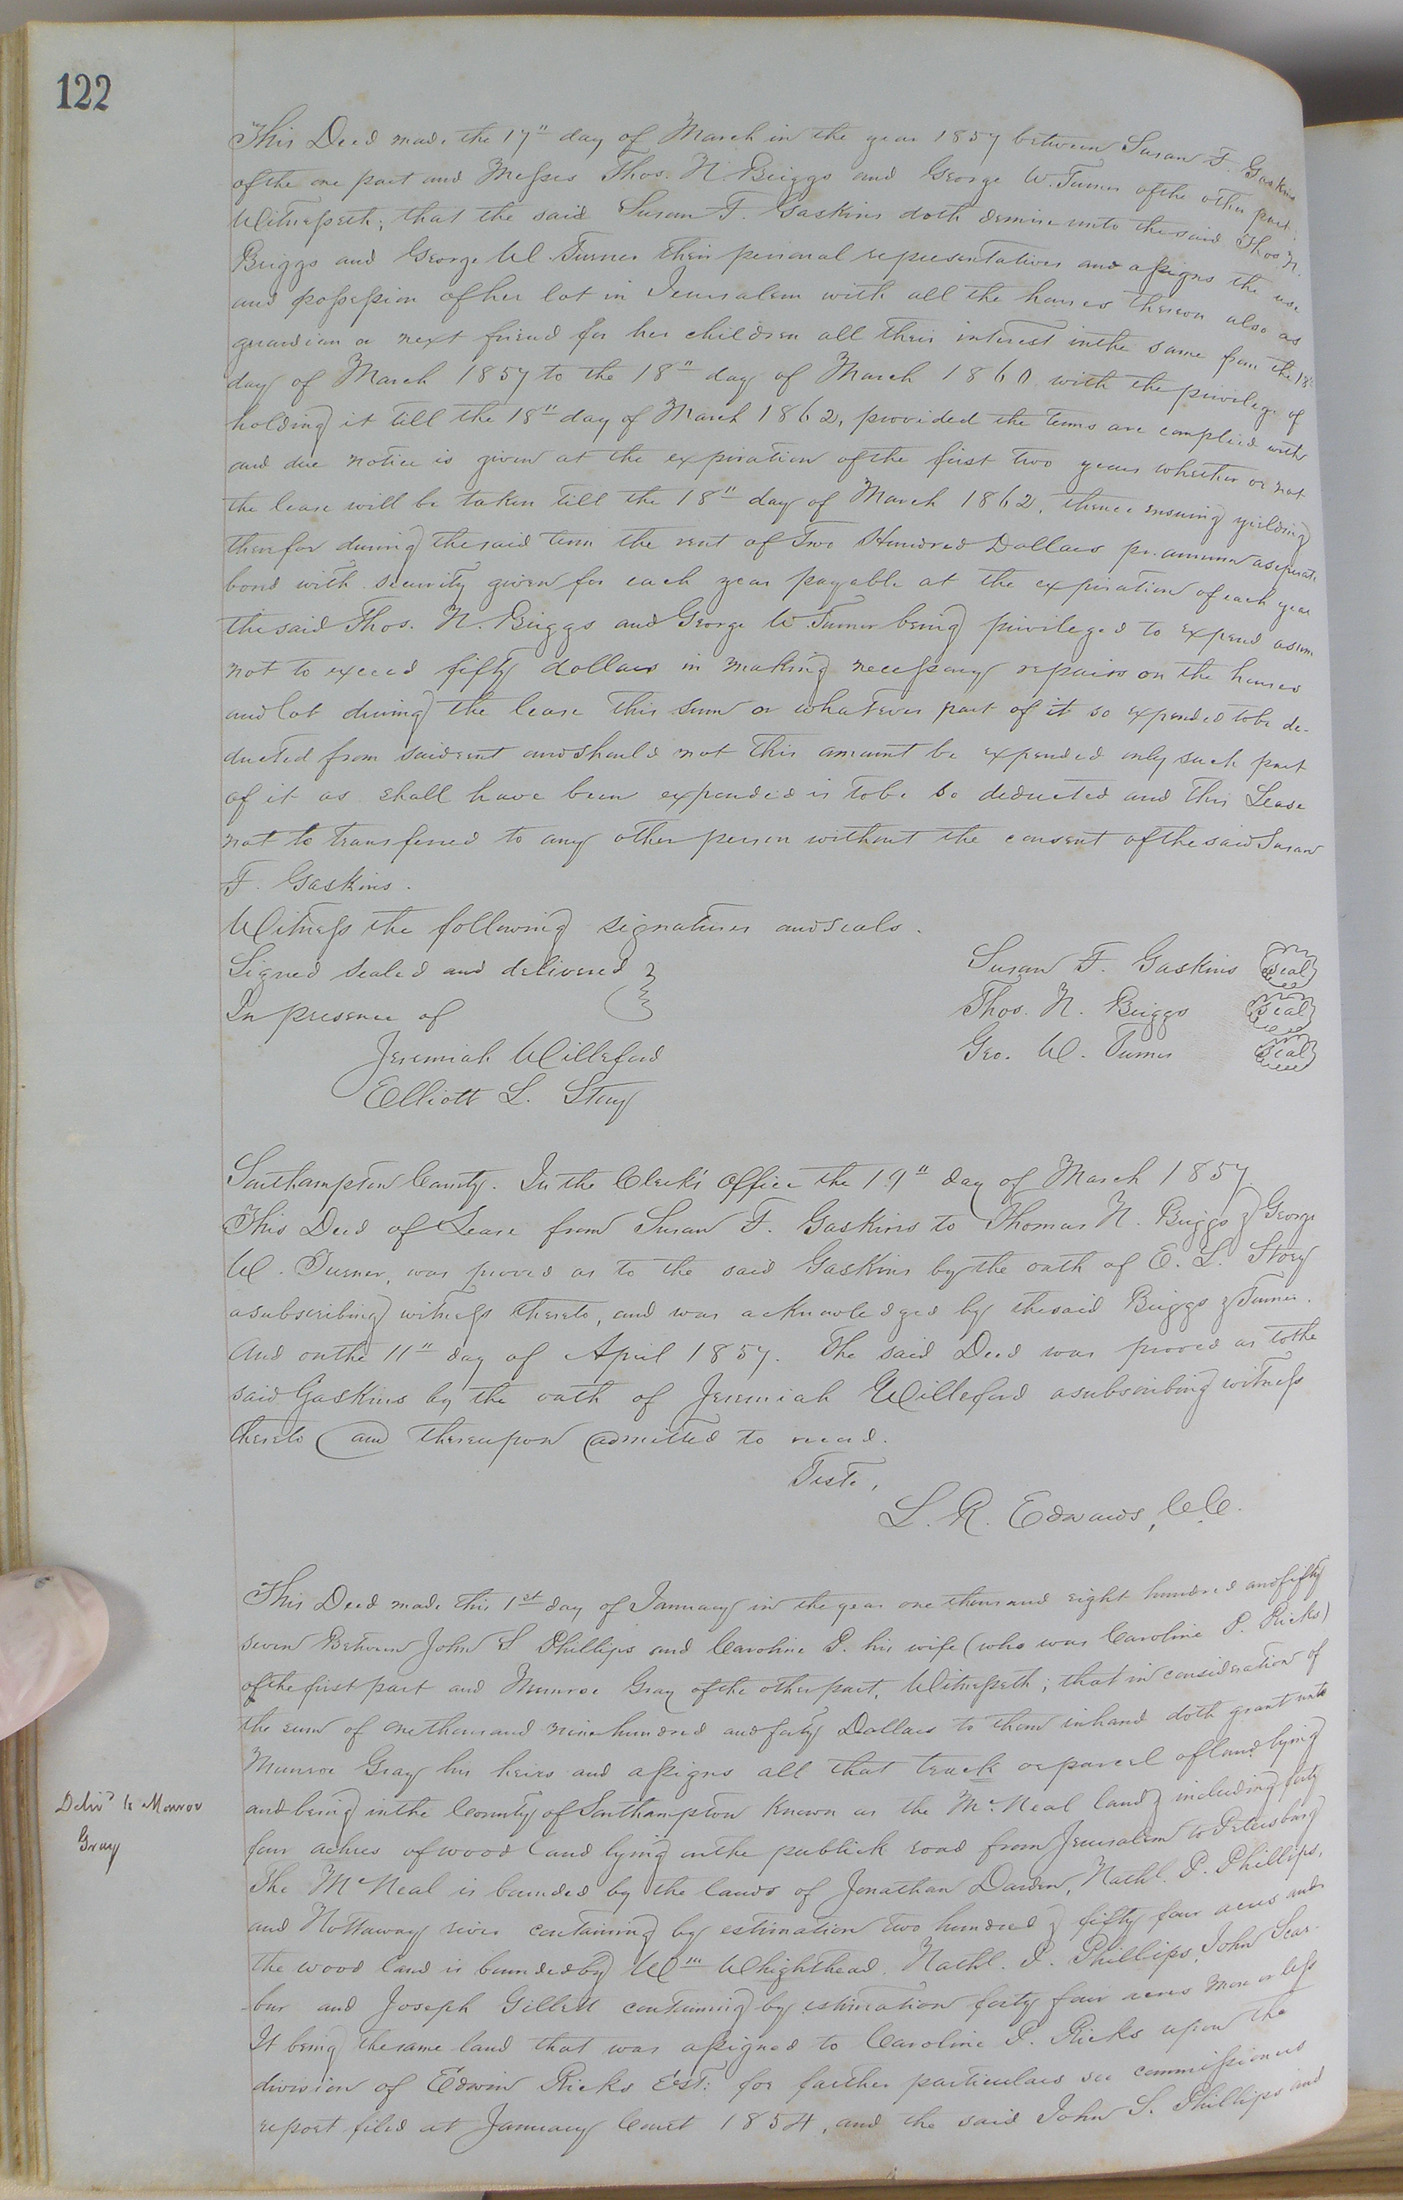 122
This Deed made the 17" day of March in the year 1857 between Susan F. Gaskins
of the one part and Messrs Thos. N. Briggs and George W. Turner of the other part.
Witnesseth; that the said Susan F. Gaskins doth demise unto the said Thos. N.
Briggs and George W. Turner their personal representatives and assigns the use
and possession of her lot in Jerusalem with all the houses thereon also as
guardian or next friend for her children all their interest in the same from the 18"
day of March 1857 to the 18" day of March 1860 with the privilege of
holding it till the 18" day of March 1862, provided the terms are complied with
and due notice is given at the expiration of the first two years whether or not
the lease will be taken till the 18" day of March 1862, thence ensuing yielding
therefor during the said term the rent of Two Hundred Dollars pr. annum a seperate
bond with security given for each year payable at the expiration of each year
the said Thos. N. Briggs and George W. Turner being privileged to expend a sum
not to exceed fifty dollars in making necessary repairs on the houses
and lot during the lease this sum or whatever part of it so expended to be de-
ducted from said rent and should not this amount be expended only such part
of it as shall have been expended is to be so deducted and this Lease
not to transferred to any other person without the consent of the said Susan
F. Gaskins.
Witness the following signatures and seals.
Signed sealed and delivered }
In presence of
Jeremiah Willeford
Elliott L. Story
Susan F. Gaskins Seal
Thos. N. Briggs Seal
Geo. W. Turner Seal
Southampton County. In the Clerk's Office the 19" day of March 1857.
This Deed of Lease from Susan F. Gaskins to Thomas N. Briggs & George
W. Turner, was proved as to the said Gaskins by the oath of E. L. Story
a subscribing witness thereto, and was acknowledged by the said Briggs & Turner.
And on the 11" day of April 1857. The said Deed was proved as to the
said Gaskins by the oath of Jeremiah Willeford a subscribing witness
thereto and thereupon admitted to record.
Teste,
L. R. Edwards, C.C.
This Deed made this 1st day of January in the year one thousand eight hundred and fifty
seven Between John S Phillips and Caroline P. his wife (who was Caroline P. Ricks)
of the first part and Munroe Gray of the other part, Witnesseth; that in consideration of
the sum of one thousand nine hundred and forty Dollars to them in hand doth grant unto
Munroe Gray his heirs and assigns all that track or parcel of land lying
and being in the County of Southampton known as the McNeal land, including forty
four achres of wood land lying on the publick road from Jerusalem to Petersburg
The McNeal is bounded by the lands of Jonathan Darden, Nathl. P. Phillips,
and Nottaway river containing by estimation two hundred & fifty four acres and
the wood land is bounded by Wm Whighthead, Nathl. P. Phillips, John Scar-
-bur and Joseph Gillett containing by estimation forty four acres more or less
It being the same land that was assigned to Caroline P. Ricks upon the
division of Edwin Ricks Est: for farther particulars see commissioners
report filed at January Court 1854, and the said John S. Phillips and
Delivd to Monroe
Gray